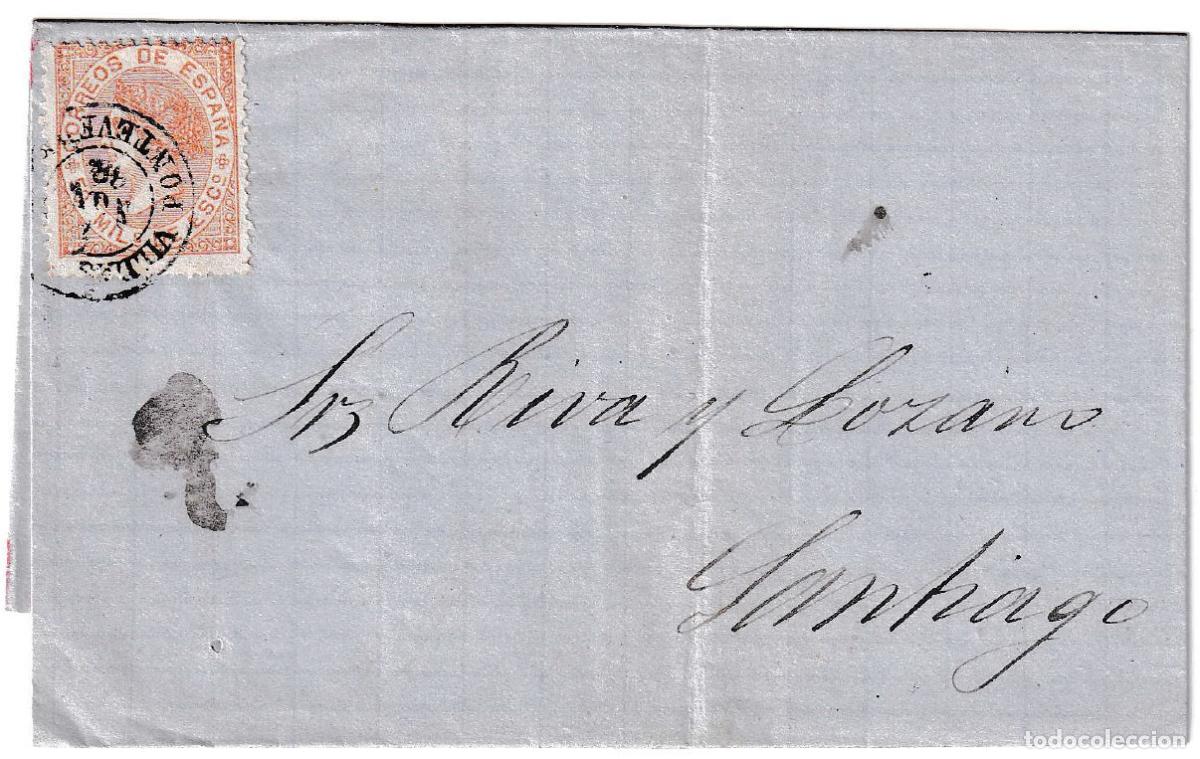 CORREOS DE ESPAÑA
MIL
ESCO
PONTEVE
VILLA
Srs Riva y Lozano
Santiago
todocoleccion